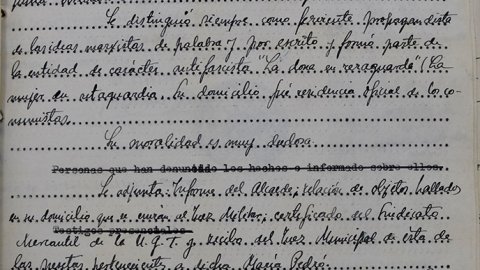 Se distinguió siempre como ferviente propagandista
de las ideas marxistas de palabra y por escrito y formó parte de
la entidad de carácter antifascista "La dona en reraguarda" (La
mujer en retaguardia. Su domicilio fué residencia oficial de los co-
munistas.
Su moralidad es muy dudosa.
Personas que han denunciado los hechos o informado sobre ellos.
Se adjunta Informe del Alcalde; relación de objetos hallados
en su domicilio que se envian al Juez Militar; certificado del Sindicato
Testigos presenciales
Mercantil de la U.G.T. y recibo del Juez Municipal de esta de
las pesetas pertenecientes a dicha María Pedró